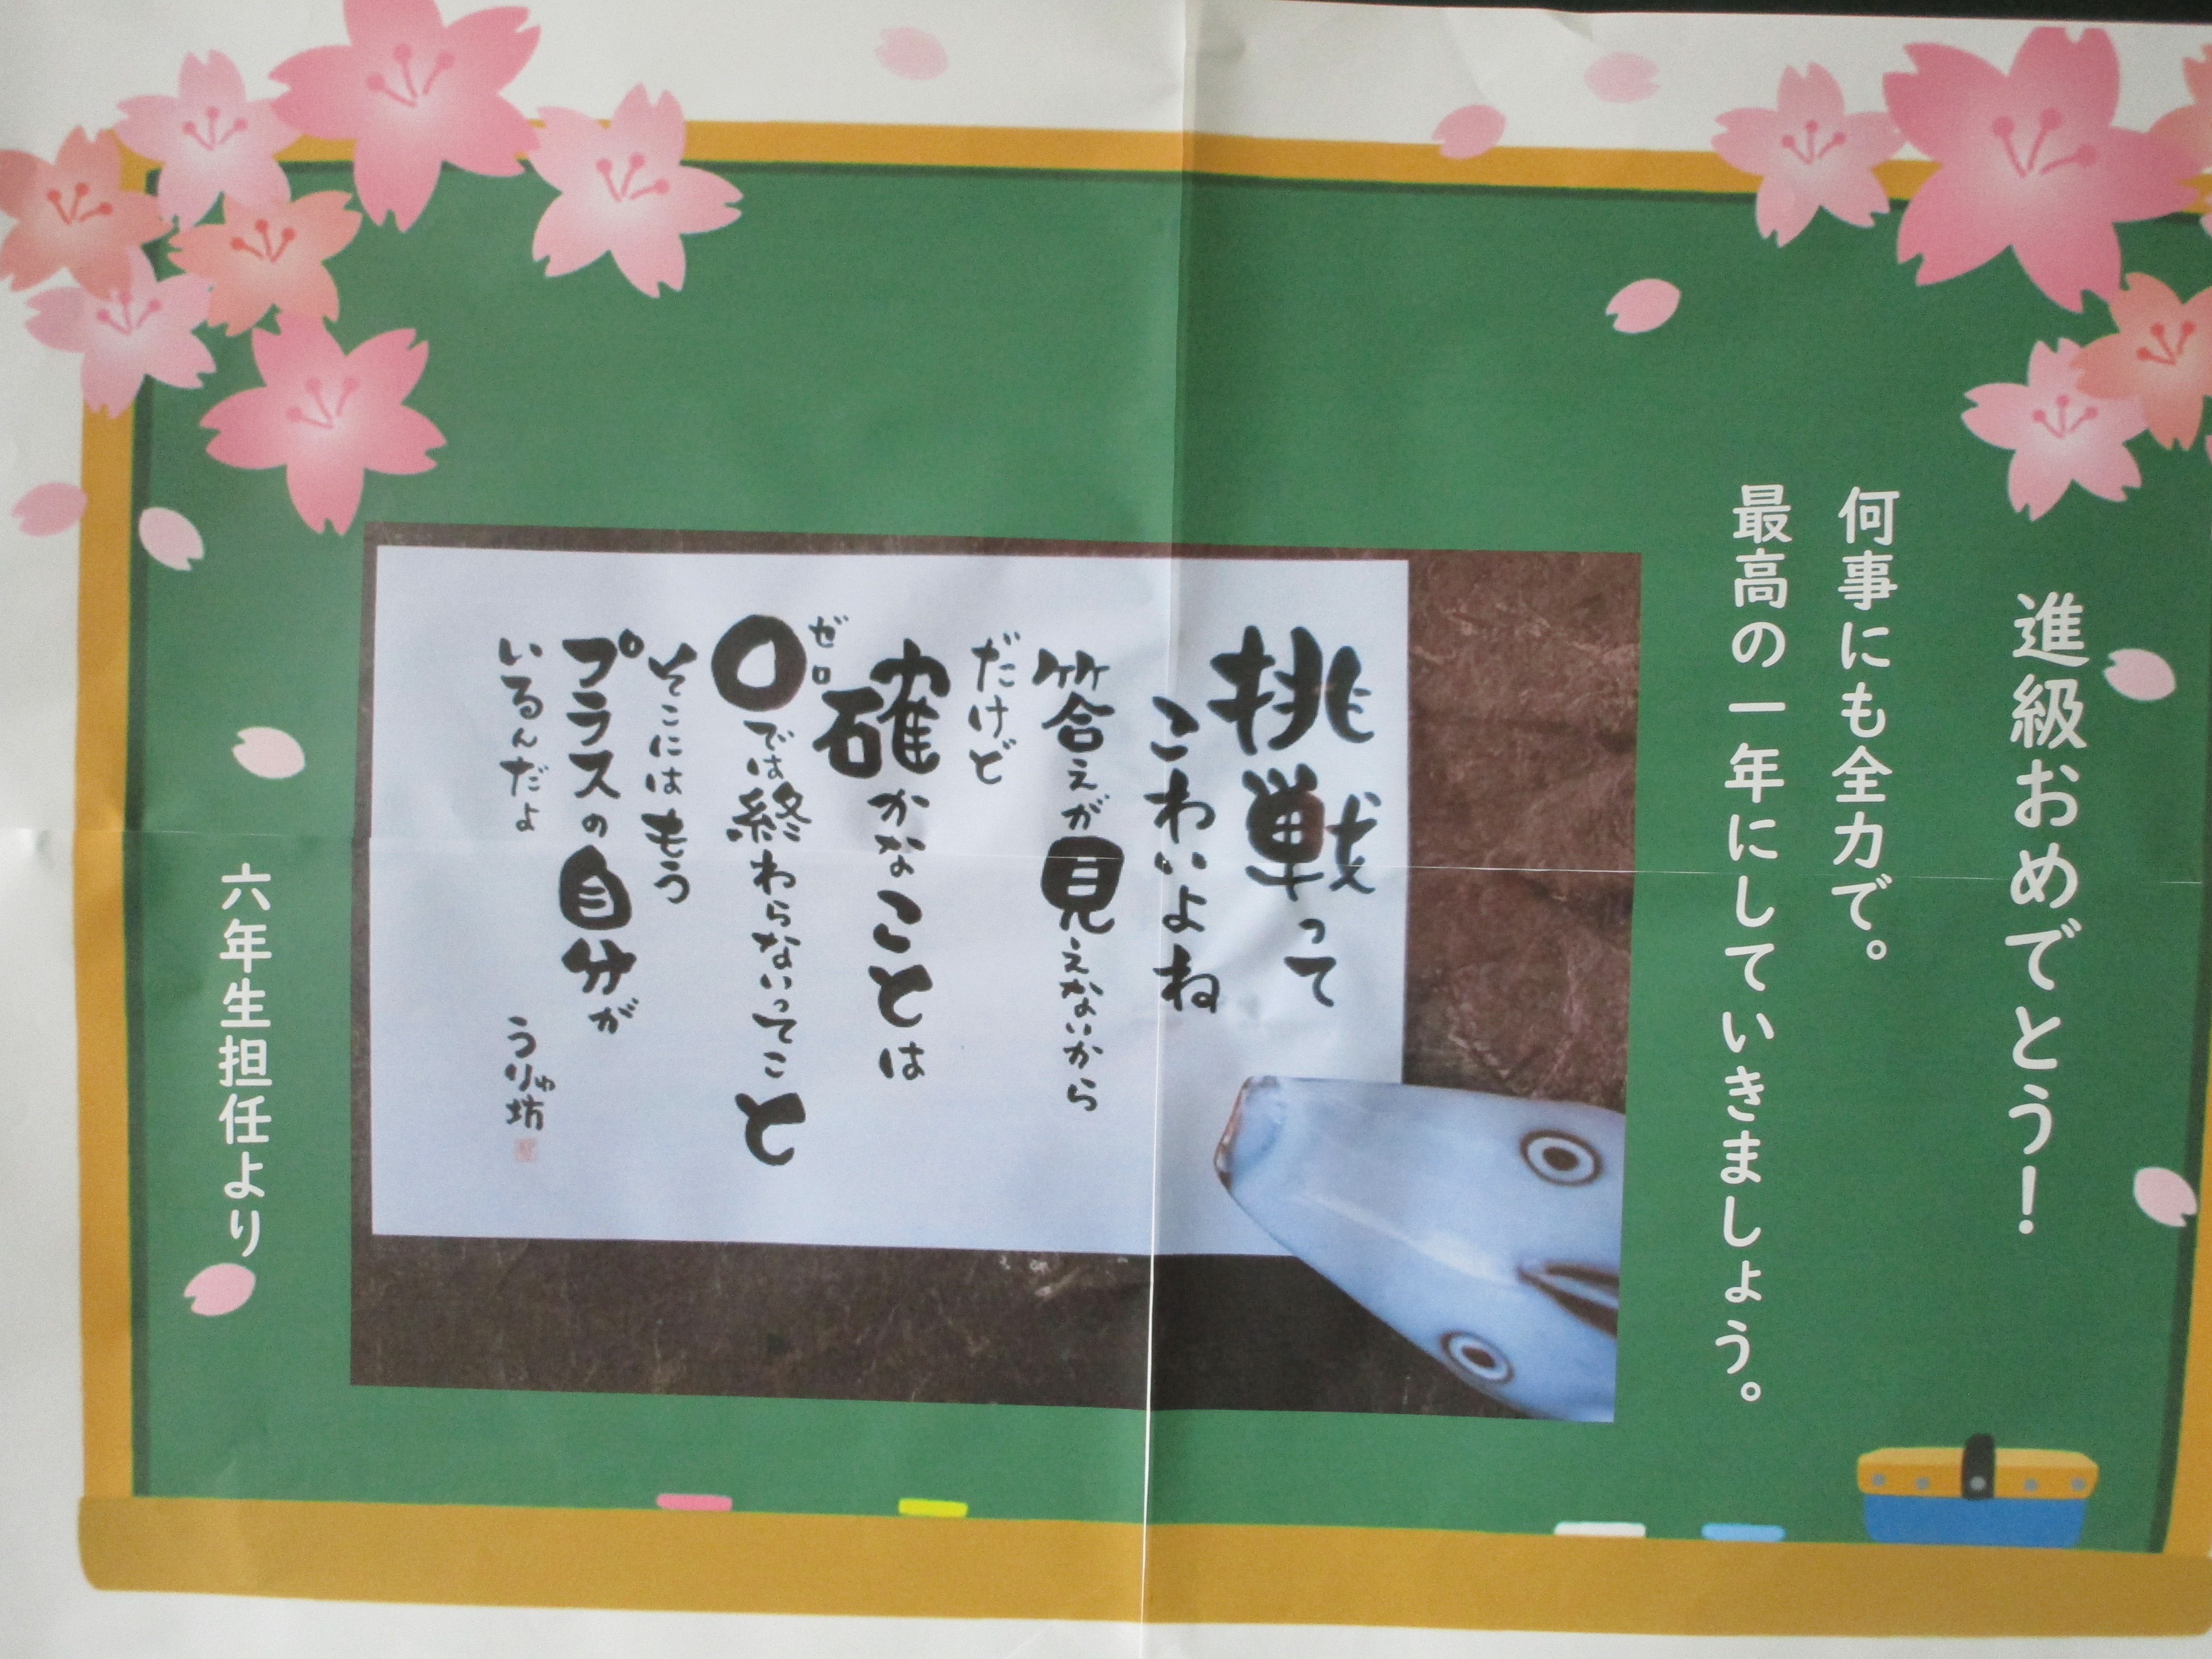 進級おめでとう!
何事にも全力で。
最高の一年にしていきましょう。
挑戦って
こわいよね
答えが見えないから
だけど
確かなことは
ゼロ
0では終わらないってこと
そこにはもう
プラスの自分が
いるんだよ
うりゅ坊
六年生担任より